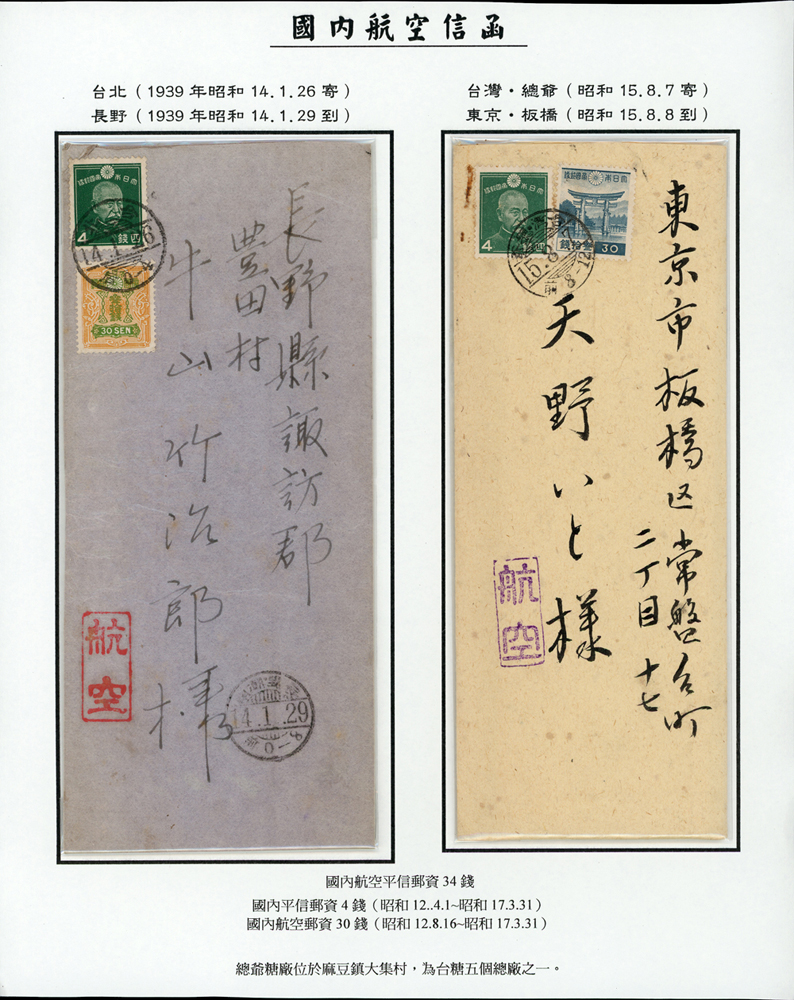 國內航空信函
台北（1939 年昭和 14.1.26 寄）
長野（1939 年昭和 14.1.29 到）
台灣・總爺（昭和 15.8.7 寄）
東京・板橋（昭和 15.8.8 到）
4 錢四
14.1.26
30 SEN
長野縣諏訪郡
豊田村
牛山竹治郎様
航空
14.1.29
0-8
4
錢拾参 30
15.8
前 8-12
東京市板橋区常盤台町
二丁目十七
天野いと様
航空
國內航空平信郵資 34 錢
國內平信郵資 4 錢（昭和 12..4.1~昭和 17.3.31）
國內航空郵資 30 錢（昭和 12.8.16~昭和 17.3.31）
總爺糖廠位於麻豆鎮大集村，為台糖五個總廠之一。